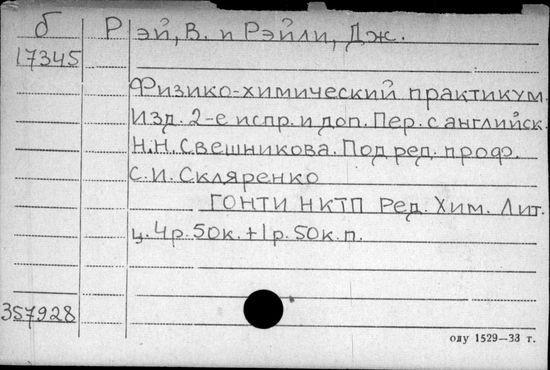 б Рэй, В. и Рэйли, Дж.
17345
Физико-химический практикум
Изд. 2-е испр. и доп. Пер. с английск.
Н.Н. Свешникова. Под ред. проф.
С.И. Скляренко
ГОНТИ НКТП Ред. Хим. Лит.
ц. 4р. 50к. + 1р. 50к. п.
357928
олу 1529—33 т.